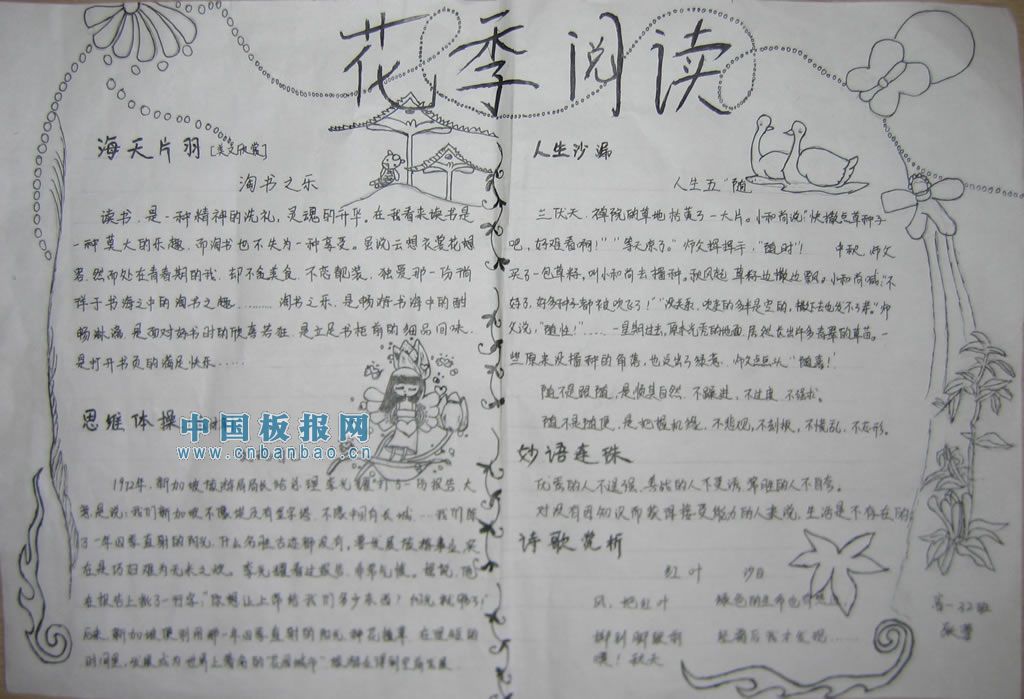 花季阅读
海天片羽[美文欣赏]
淘书之乐
读书,是一种精神的洗礼,灵魂的升华。在我看来读书是
一种莫大的乐趣,而淘书也不失为一种享受。虽风云想衣裳花想
容,然而处在青春期的我,却不贪美食,不恋靓装,独爱那一份徜
徉于书海之中的淘书之趣………淘书之乐,是畅游书海中的酣
畅淋漓,是面对好书时的欣喜若狂,是立足书柜前的细品回味,
是打开书页的满足快乐……
思维体操
中国板报网
www.cnbanbao.cn
1972年,新加坡旅游局局长给总理李光耀打了一份报告,大
意是说:我们新加坡不像埃及有金字塔,不像中国有长城……我们除
了一年四季直射的阳光,什么名胜古迹都没有,要发展旅游事业,实
在是巧妇难为无米之炊。李光耀看过报告,非常气愤。据说,他
在报告上批了一行字:"你想让上帝给我们多少东西?阳光就够了!"
后来,新加坡便利用那一年四季直射的阳光,种花植草,在很短的
时间里,发展成为世界上著名的"花园城市"
人生沙漏
人生五"随"
三伏天,禅院的草地枯黄了一大片。小和尚说"快撒点草种子
吧,好难看啊!""等天凉了。"师父挥挥手,"随时"! 中秋,师父
买了一包草籽,叫小和尚去播种。秋风起,草籽边撒边飘。小和尚喊:"不
好了,好多种子都被吹飞了!""没关系,吹走的多半是空的,撒下去也发不了芽。"师
父说,"随性!"……一星期过去,原本光秃的地面,居然长出许多青翠的草苗。一
些原来没播种的角落,也泛出了绿意,师父点点头:"随喜!"
随不是跟随,是顺其自然,不躁进,不过度,不强求。
随不是随便,是把握机缘,不悲观,不刻板,不慌乱,不忘形。
妙语连珠
优秀的人不逞强,善战的人不
对没有用知识而获得接受能力的人来说,生活是不存在的
诗歌赏析
红叶 沙白
风,把红叶
掷到脚跟前
噢!秋天
绿色的生命也
高一32班